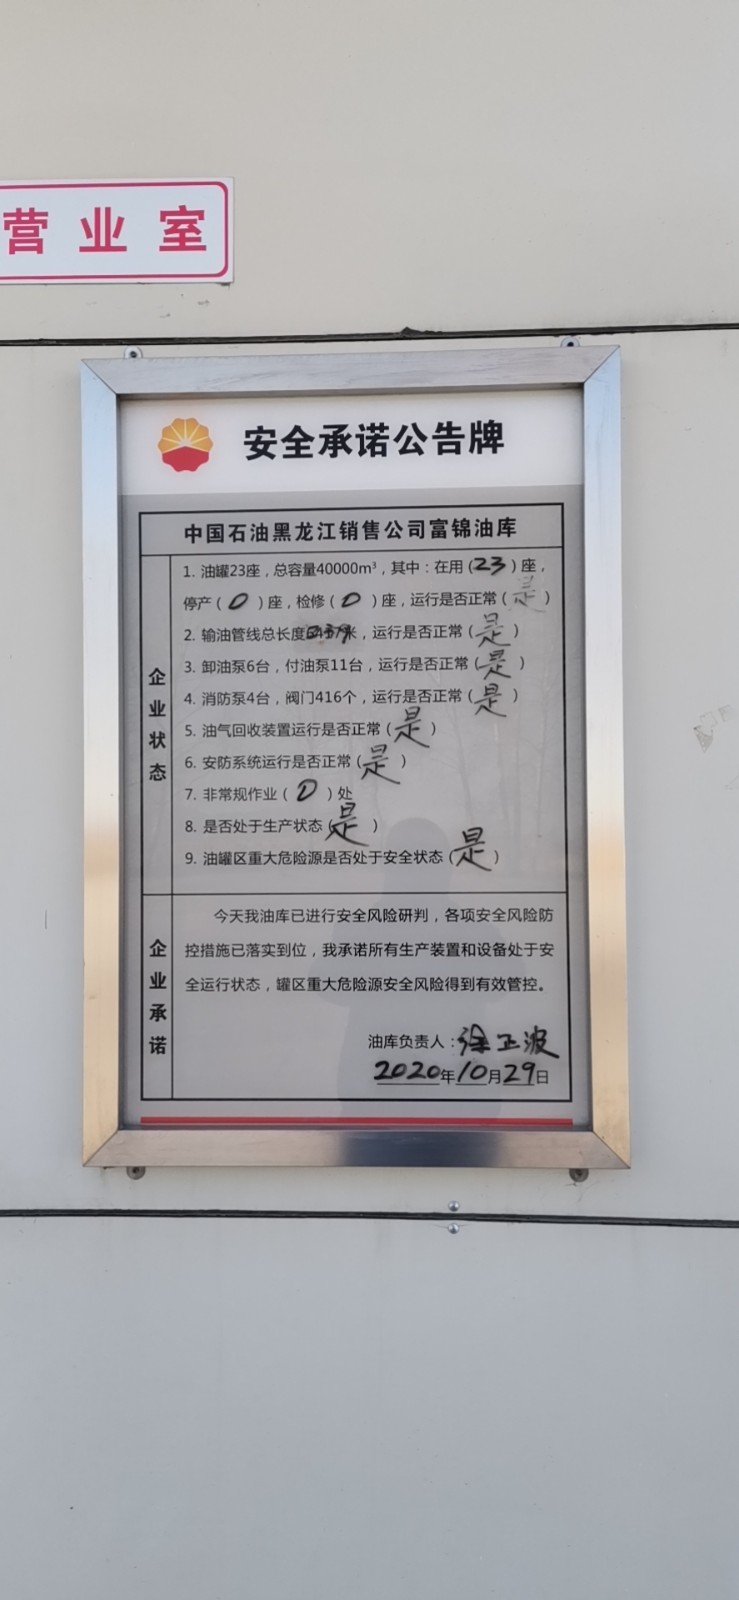 营业室
安全承诺公告牌
中国石油黑龙江销售公司富锦油库
企业状态
1. 油罐23座，总容量40000m³，其中：在用(23)座，
停产(0)座，检修(0)座，运行是否正常(是)
2. 输油管线总长度 米，运行是否正常(是)
3. 卸油泵6台，付油泵11台，运行是否正常(是)
4. 消防泵4台，阀门416个，运行是否正常(是)
5. 油气回收装置运行是否正常(是)
6. 安防系统运行是否正常(是)
7. 非常规作业(0)处
8. 是否处于生产状态(是)
9. 油罐区重大危险源是否处于安全状态(是)
企业承诺
今天我油库已进行安全风险研判，各项安全风险防
控措施已落实到位，我承诺所有生产装置和设备处于安
全运行状态，罐区重大危险源安全风险得到有效管控。
油库负责人：徐正波
2020年10月29日